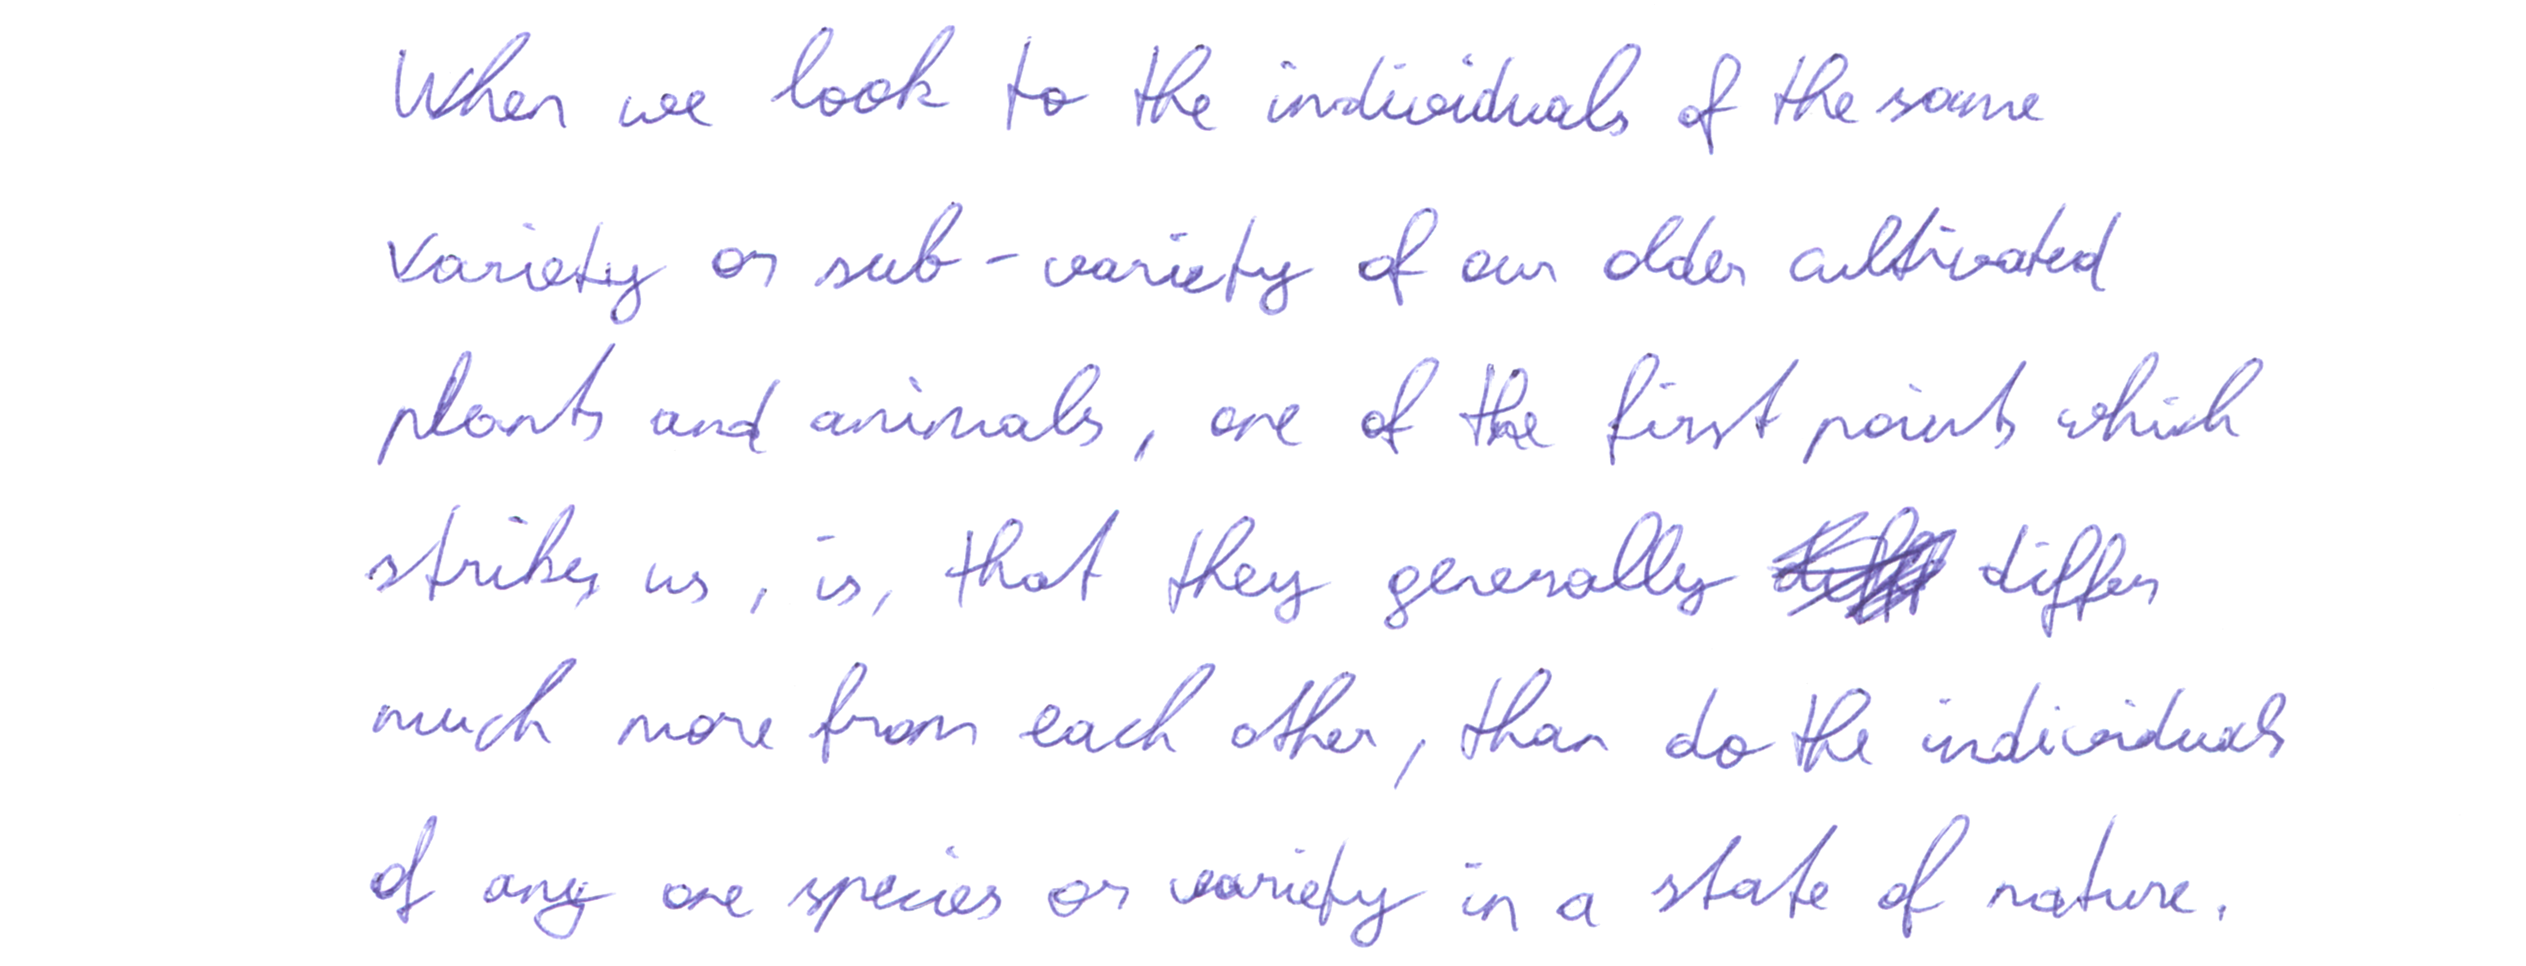 When we look to the individuals of the same
variety or sub-variety of our older cultivated
plants and animals, one of the first points which
strikes us, is, that they generally differ
much more from each other, than do the individuals
of any one species or variety in a state of nature.